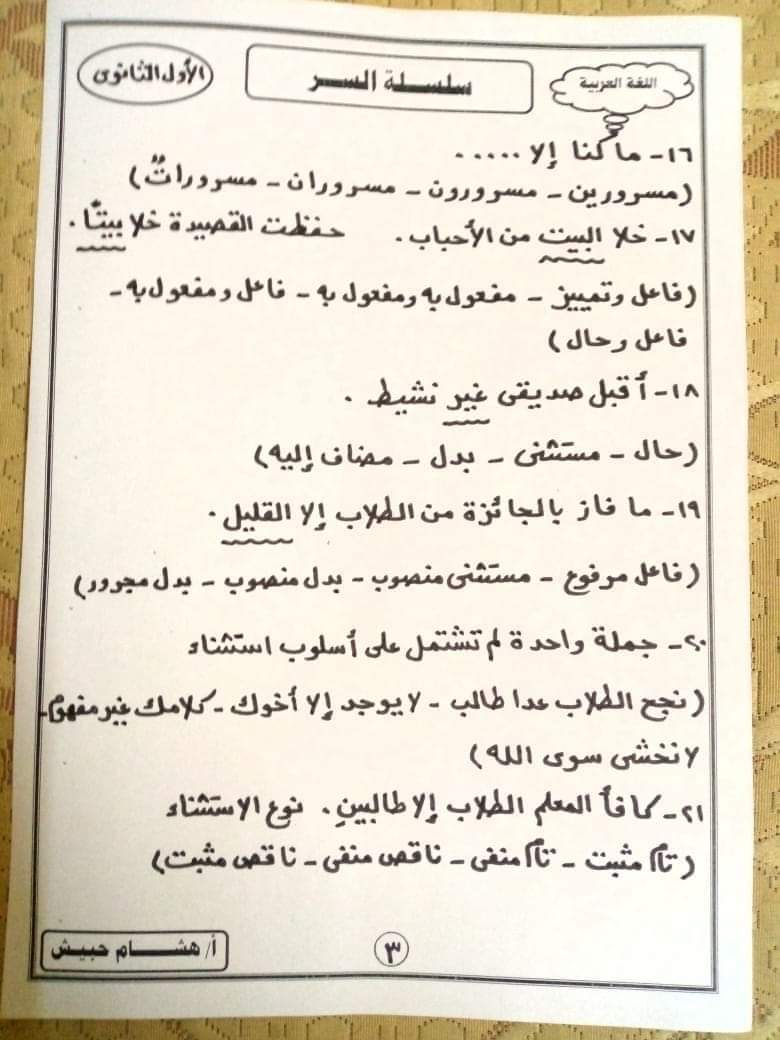 اللغة العربية
سلسلة السر
الأول الثانوى
١٦- ما كنا إلا .....
(مسرورين - مسرورون - مسروران - مسروراتٌ)
١٧- خلا البيت من الأحباب. حفظت القصيدة خلا بيتًا.
(فاعل وتمييز - مفعول به ومفعول به - فاعل ومفعول به -
فاعل وحال)
١٨- أقبل صديقى غير نشيط.
(حال - مستثنى - بدل - مضاف إليه)
١٩- ما فاز بالجائزة من الطلاب إلا القليل.
(فاعل مرفوع - مستثنى منصوب - بدل منصوب - بدل مجرور)
٢٠- جملة واحدة لم تشتمل على أسلوب استثناء
(نجح الطلاب عدا طالب - لا يوجد إلا أخوك - كلامك غير مفهوم -
لا نخشى سوى الله)
٢١- كافأ المعلم الطلاب إلا طالبينِ. نوع الاستثناء
(تام مثبت - تام منفى - ناقص منفى - ناقص مثبت)
٣
أ/ هشام حبيش